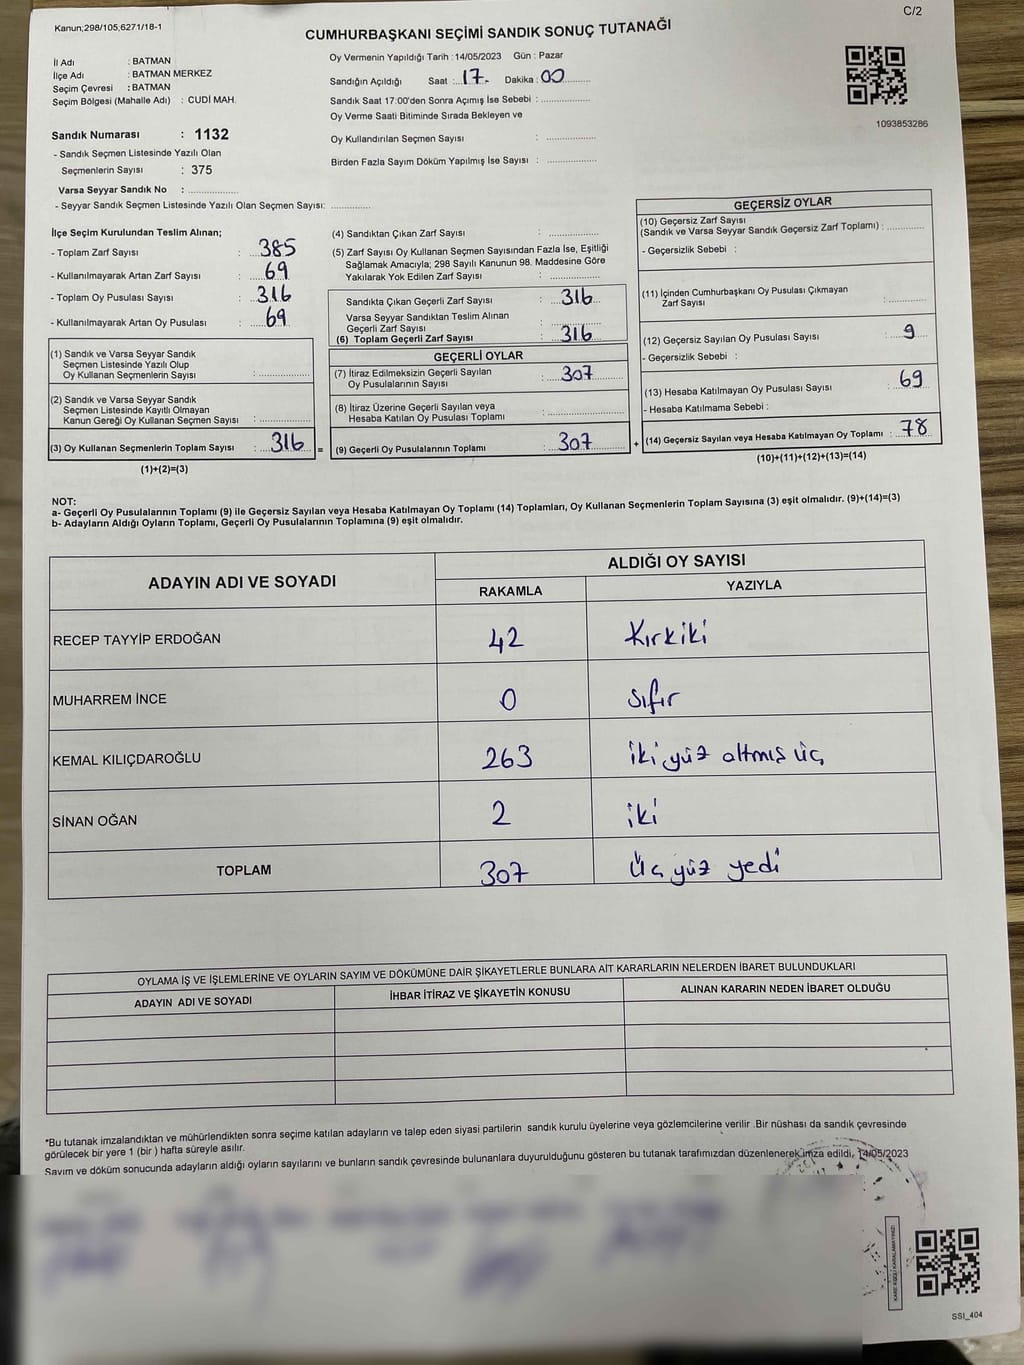 Kanun;298/105,6271/18-1
C/2
CUMHURBAŞKANI SEÇİMİ SANDIK SONUÇ TUTANAĞI
İl Adı : BATMAN
İlçe Adı : BATMAN MERKEZ
Seçim Çevresi : BATMAN
Seçim Bölgesi (Mahalle Adı) : CUDİ MAH.
Oy Vermenin Yapıldığı Tarih : 14/05/2023 Gün : Pazar
Sandığın Açıldığı Saat : 17. Dakika : 00
Sandık Saat 17:00'den Sonra Açılmış İse Sebebi :
Oy Verme Saati Bitiminde Sırada Bekleyen ve
Oy Kullandırılan Seçmen Sayısı :
Birden Fazla Sayım Döküm Yapılmış İse Sayısı :
1093853286
Sandık Numarası : 1132
- Sandık Seçmen Listesinde Yazılı Olan
Seçmenlerin Sayısı : 375
Varsa Seyyar Sandık No :
- Seyyar Sandık Seçmen Listesinde Yazılı Olan Seçmen Sayısı:
İlçe Seçim Kurulundan Teslim Alınan;
- Toplam Zarf Sayısı : 385
- Kullanılmayarak Artan Zarf Sayısı : 69
- Toplam Oy Pusulası Sayısı : 316
- Kullanılmayarak Artan Oy Pusulası : 69
(1) Sandık ve Varsa Seyyar Sandık
Seçmen Listesinde Yazılı Olup
Oy Kullanan Seçmenlerin Sayısı :
(2) Sandık ve Varsa Seyyar Sandık
Seçmen Listesinde Kayıtlı Olmayan
Kanun Gereği Oy Kullanan Seçmen Sayısı :
(3) Oy Kullanan Seçmenlerin Toplam Sayısı : 316 =
(1)+(2)=(3)
(4) Sandıktan Çıkan Zarf Sayısı :
(5) Zarf Sayısı Oy Kullanan Seçmen Sayısından Fazla İse, Eşitliği
Sağlamak Amacıyla; 298 Sayılı Kanunun 98. Maddesine Göre
Yakılarak Yok Edilen Zarf Sayısı :
Sandıkta Çıkan Geçerli Zarf Sayısı : 316
Varsa Seyyar Sandıktan Teslim Alınan
Geçerli Zarf Sayısı :
(6) Toplam Geçerli Zarf Sayısı : 316
GEÇERLİ OYLAR
(7) İtiraz Edilmeksizin Geçerli Sayılan
Oy Pusulalarının Sayısı : 307
(8) İtiraz Üzerine Geçerli Sayılan veya
Hesaba Katılan Oy Pusulası Toplamı :
(9) Geçerli Oy Pusulalarının Toplamı : 307 +
GEÇERSİZ OYLAR
(10) Geçersiz Zarf Sayısı
(Sandık ve Varsa Seyyar Sandık Geçersiz Zarf Toplamı) :
- Geçersizlik Sebebi :
(11) İçinden Cumhurbaşkanı Oy Pusulası Çıkmayan
Zarf Sayısı :
(12) Geçersiz Sayılan Oy Pusulası Sayısı : 9
- Geçersizlik Sebebi :
(13) Hesaba Katılmayan Oy Pusulası Sayısı : 69
- Hesaba Katılmama Sebebi :
(14) Geçersiz Sayılan veya Hesaba Katılmayan Oy Toplamı : 78
(10)+(11)+(12)+(13)=(14)
NOT:
a- Geçerli Oy Pusulalarının Toplamı (9) ile Geçersiz Sayılan veya Hesaba Katılmayan Oy Toplamı (14) Toplamları, Oy Kullanan Seçmenlerin Toplam Sayısına (3) eşit olmalıdır. (9)+(14)=(3)
b- Adayların Aldığı Oyların Toplamı, Geçerli Oy Pusulalarının Toplamına (9) eşit olmalıdır.
ADAYIN ADI VE SOYADI
ALDIĞI OY SAYISI
RAKAMLA YAZIYLA
RECEP TAYYİP ERDOĞAN 42 Kırkiki
MUHARREM İNCE 0 sıfır
KEMAL KILIÇDAROĞLU 263 iki yüz altmış üç
SİNAN OĞAN 2 iki
TOPLAM 307 Üç yüz yedi
OYLAMA İŞ VE İŞLEMLERİNE VE OYLARIN SAYIM VE DÖKÜMÜNE DAİR ŞİKAYETLERLE BUNLARA AİT KARARLARIN NELERDEN İBARET BULUNDUKLARI
ADAYIN ADI VE SOYADI İHBAR İTİRAZ VE ŞİKAYETİN KONUSU ALINAN KARARIN NEDEN İBARET OLDUĞU
*Bu tutanak imzalandıktan ve mühürlendikten sonra seçime katılan adayların ve talep eden siyasi partilerin sandık kurulu üyelerine veya gözlemcilerine verilir .Bir nüshası da sandık çevresinde
görülecek bir yere 1 (bir ) hafta süreyle asılır.
Sayım ve döküm sonucunda adayların aldığı oyların sayılarını ve bunların sandık çevresinde bulunanlara duyurulduğunu gösteren bu tutanak tarafımızdan düzenlenerek imza edildi, 14/05/2023
KARE KODU KARALAMAYINIZ!
SSI_404